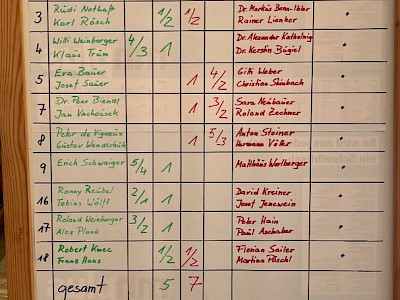 3 Rüdi Nothaft 1/2 1/2 Dr. Markus Benn-Ibler
Karl Rösch Rainer Lienher
4 Willi Weinberger 4/3 1 Dr. Alexander Kathelnig
Klaus Trum Dr. Kerstin Bügiel
5 Eva Bauer 1 4/2 Gitti Weber
Josef Sauer Christian Steinbach
7 Dr. Peer Biendl 1 3/2 Sara Neubauer
Jan Vachousek Roland Zechner
8 Peter de Vigneux 1 5/3 Anton Steiner
Gustav Wendschuh Hermann Völker
9 Erich Schwaiger 5/4 1 Matthäus Warlberger
16 Ronny Reubel 2/1 1 David Kreiner
Tobias Wölfl Josef Jenewein
17 Roland Weinberger 3/2 1 Peter Hain
Alex Plank Paul Aschaber
18 Robert Kmec 1/2 1/2 Florian Sailer
Franz Haas Martina Pöschl
gesamt 5 7